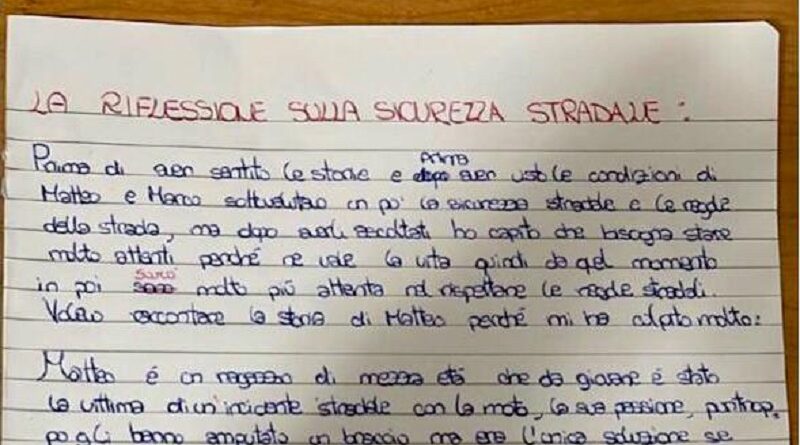 LA RIFLESSIONE SULLA SICUREZZA STRADALE:
Prima di aver sentito le storie e prima aver visto le condizioni di
Matteo e Marco sottovalutavo un po' la sicurezza stradale e le regole
della strada, ma dopo averli ascoltati ho capito che bisogna stare
molto attenti perché ne vale la vita quindi da quel momento
in poi sarò molto più attenta nel rispettare le regole stradali.
Volevo raccontare la storia di Matteo perché mi ha colpito molto:
Matteo é un ragazzo di mezza etá che da giovane é stato
la vittima di un'incidente stradale con la moto, la sua passione, purtrop.
po gli hanno amputato un braccio ma era l'unica soluzione se